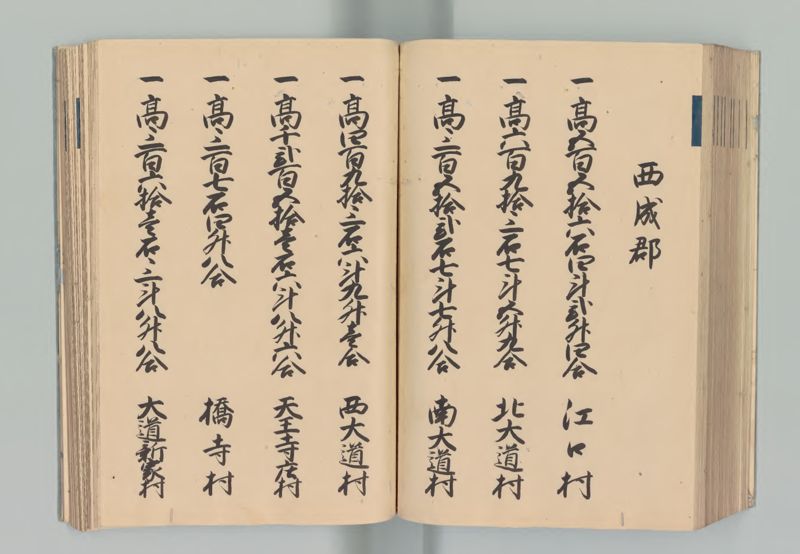 西成郡
一高五百五拾六石四斗弐升四合 江口村
一高六百九拾三石七斗五升九合 北大道村
一高三百五拾弐石七斗七升八合 南大道村
一高四百九拾三石六斗九升壱合 西大道村
一高千弐百五拾壱石六斗八升六合 天王寺庄村
一高三百七石四升八合 橋寺村
一高三百六拾壱石三斗八升八合 大道新家村